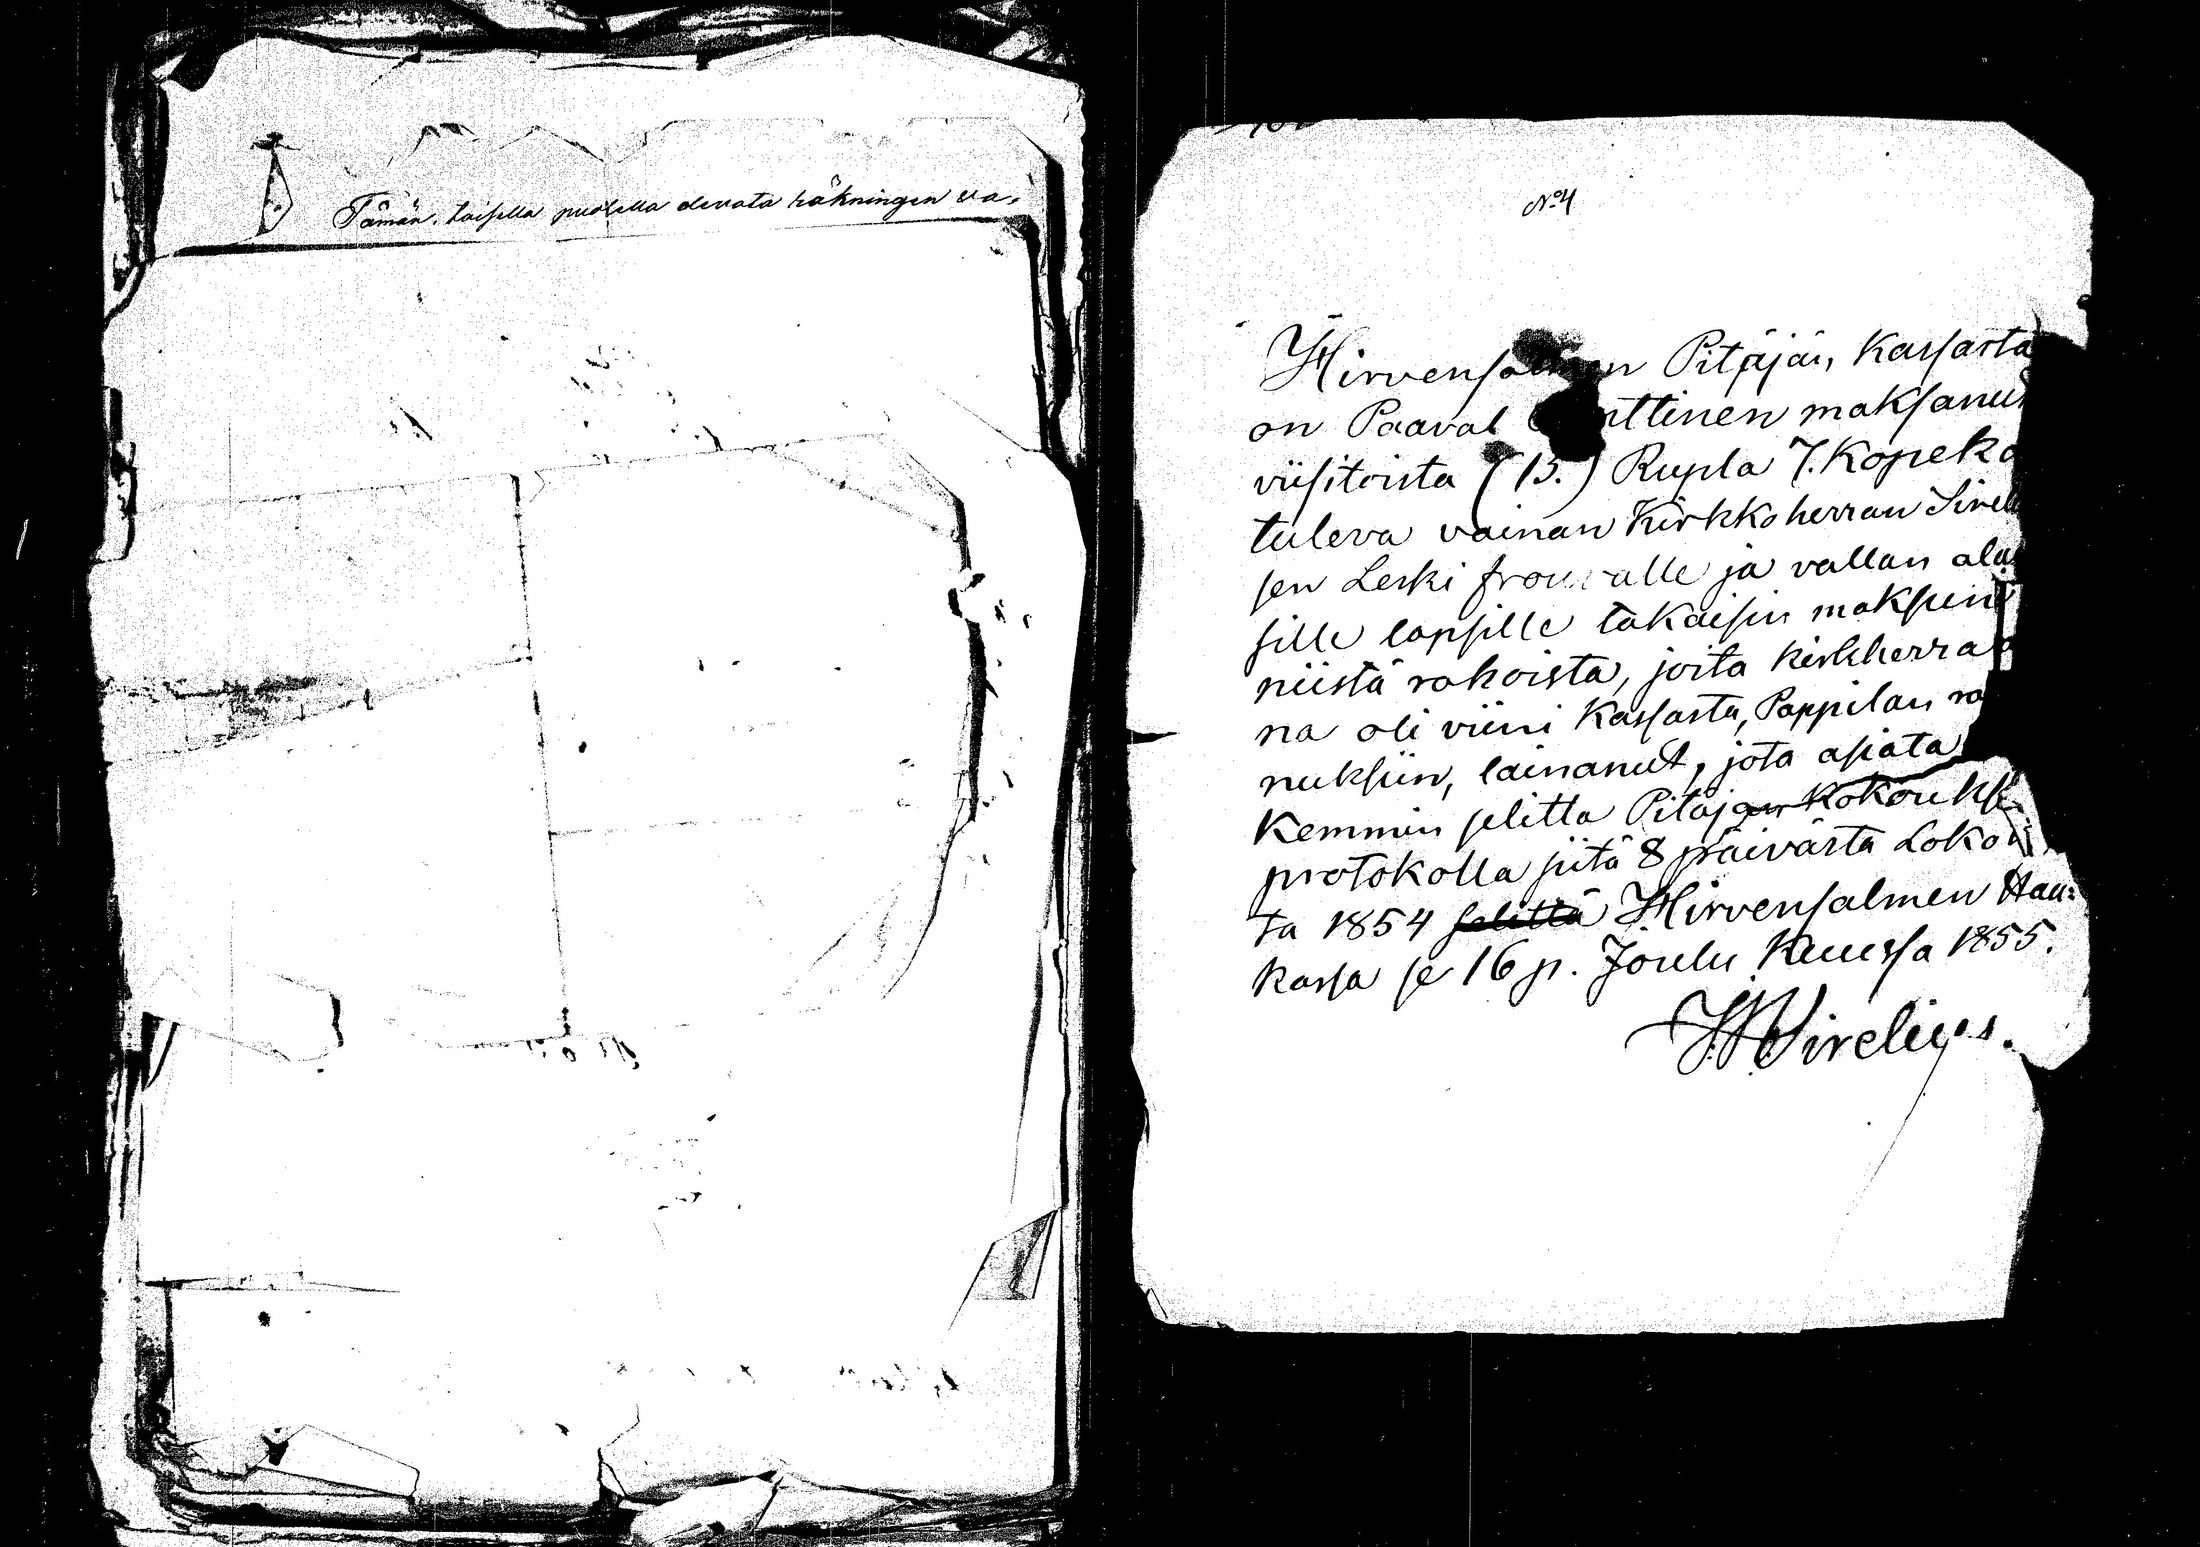 Tämän, toisella puolella olevata räkningen va,
No 4
Hirvensalmen Pitäjän, Kassasta
on Paaval ttinen maksanut
viisitoista (15.) Rupla 7. Kopeka
tuleva vainan Kirkkoherran Sireli
sen Leski frouvalle ja vallan alai
sille lapsille takaisin maksuni
niistä rahoista, joita kirkherra
na oli viini Kassasta, Pappilan ra
nuksiin, lainanut, jota asiata
Kemmin selitta Pitäjän Kokoukse
protokolla siitä 8 päivästä Loko
ta 1854 selittä Hirvensalmen Hau=
kassa se 16 p. Joulu Kuussa 1855.
Sirelius.